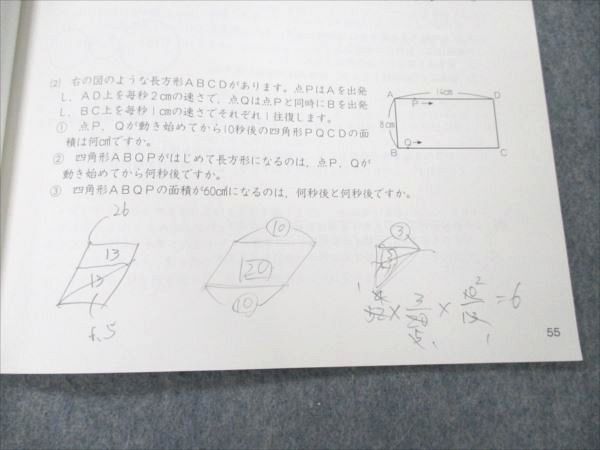 (2) 右の図のような長方形ABCDがあります。点PはAを出発
し、AD上を毎秒2cmの速さで、点Qは点Pと同時にBを出発
し、BC上を毎秒1cmの速さでそれぞれ1往復します。
① 点P、Qが動き始めてから10秒後の四角形PQCDの面
積は何cm²ですか。
② 四角形ABQPがはじめて長方形になるのは、点P、Qが
動き始めてから何秒後ですか。
③ 四角形ABQPの面積が60cm²になるのは、何秒後と何秒後ですか。
A D
P
8cm
B Q C
26
13
13
6.5
⑩
120
⑩
③
× 3 × 2 = 6
55